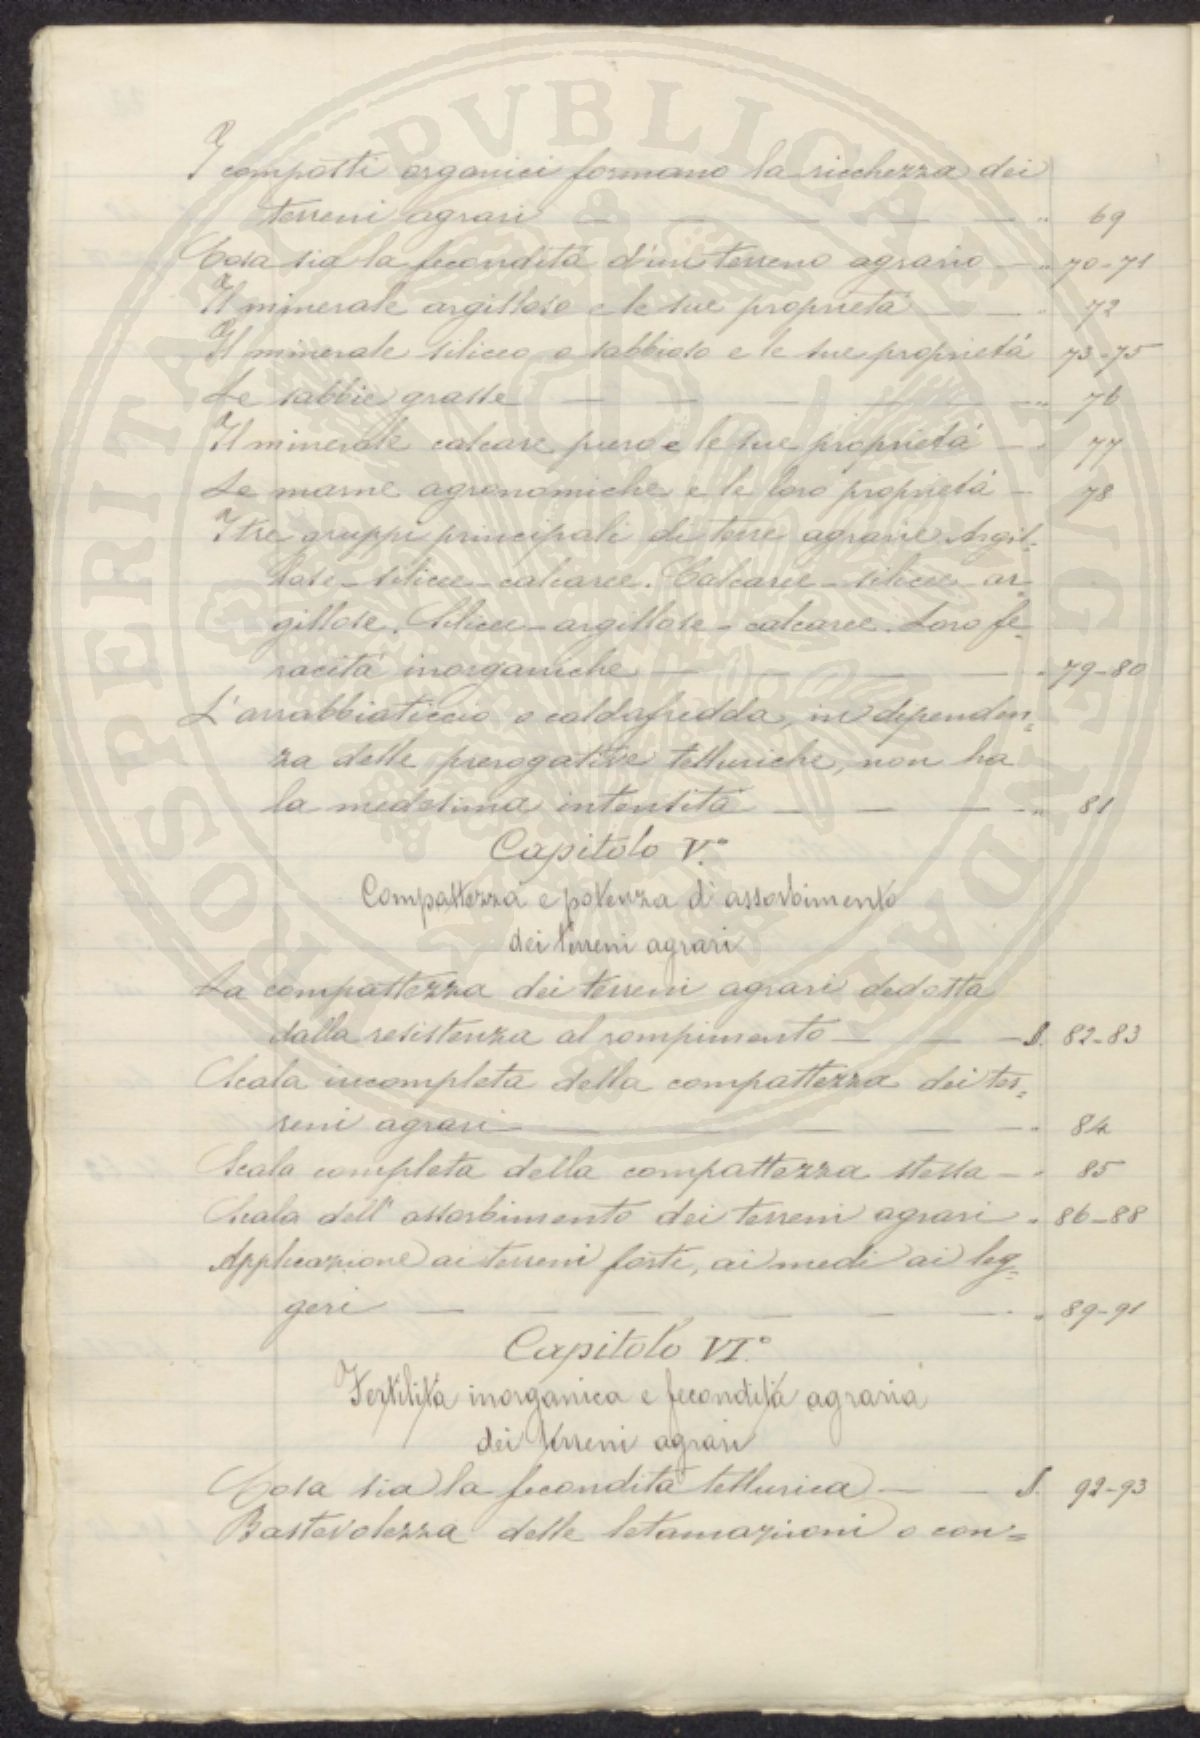 I composti organici formano la ricchezza dei
terreni agrari — — — — — " 69
Cosa sia la fecondità d'un terreno agrario — " 70-71
Il minerale argilloso e le sue proprietà — — " 72
Il minerale siliceo o sabbioso e le sue proprietà 73-75
Le sabbie grasse — — — — — " 76
Il minerale calcare puro e le sue proprietà — " 77
Le marne agronomiche e le loro proprietà — 78
I tre gruppi principali di terre agrarie. Argil=
lose-silicee-calcaree. Calcaree-silicee-ar=
gillose. Silicee-argillose-calcaree. Loro fe=
racità inorganiche — — — — " 79-80
L'arrabbiaticcio o caldafredda, in dipenden=
za delle prerogative telluriche, non ha
la medesima intensità — — — " 81
Capitolo V.°
Compattezza e potenza d'assorbimento
dei terreni agrari
La compattezza dei terreni agrari dedotta
dalla resistenza al rompimento — — — §. 82-83
Scala incompleta della compattezza dei ter=
reni agrari — — — — — " 84
Scala completa della compattezza stessa — " 85
Scala dell'assorbimento dei terreni agrari " 86-88
Applicazione ai terreni forti, ai medi ai leg=
geri — — — — — — " 89-91
Capitolo VI.°
Fertilità inorganica e fecondità agraria
dei terreni agrari
Cosa sia la fecondità tellurica — — §. 92-93
Bastevolezza delle letamazioni o con=
PROSPERITATI PVBLICAE AVGENDAE